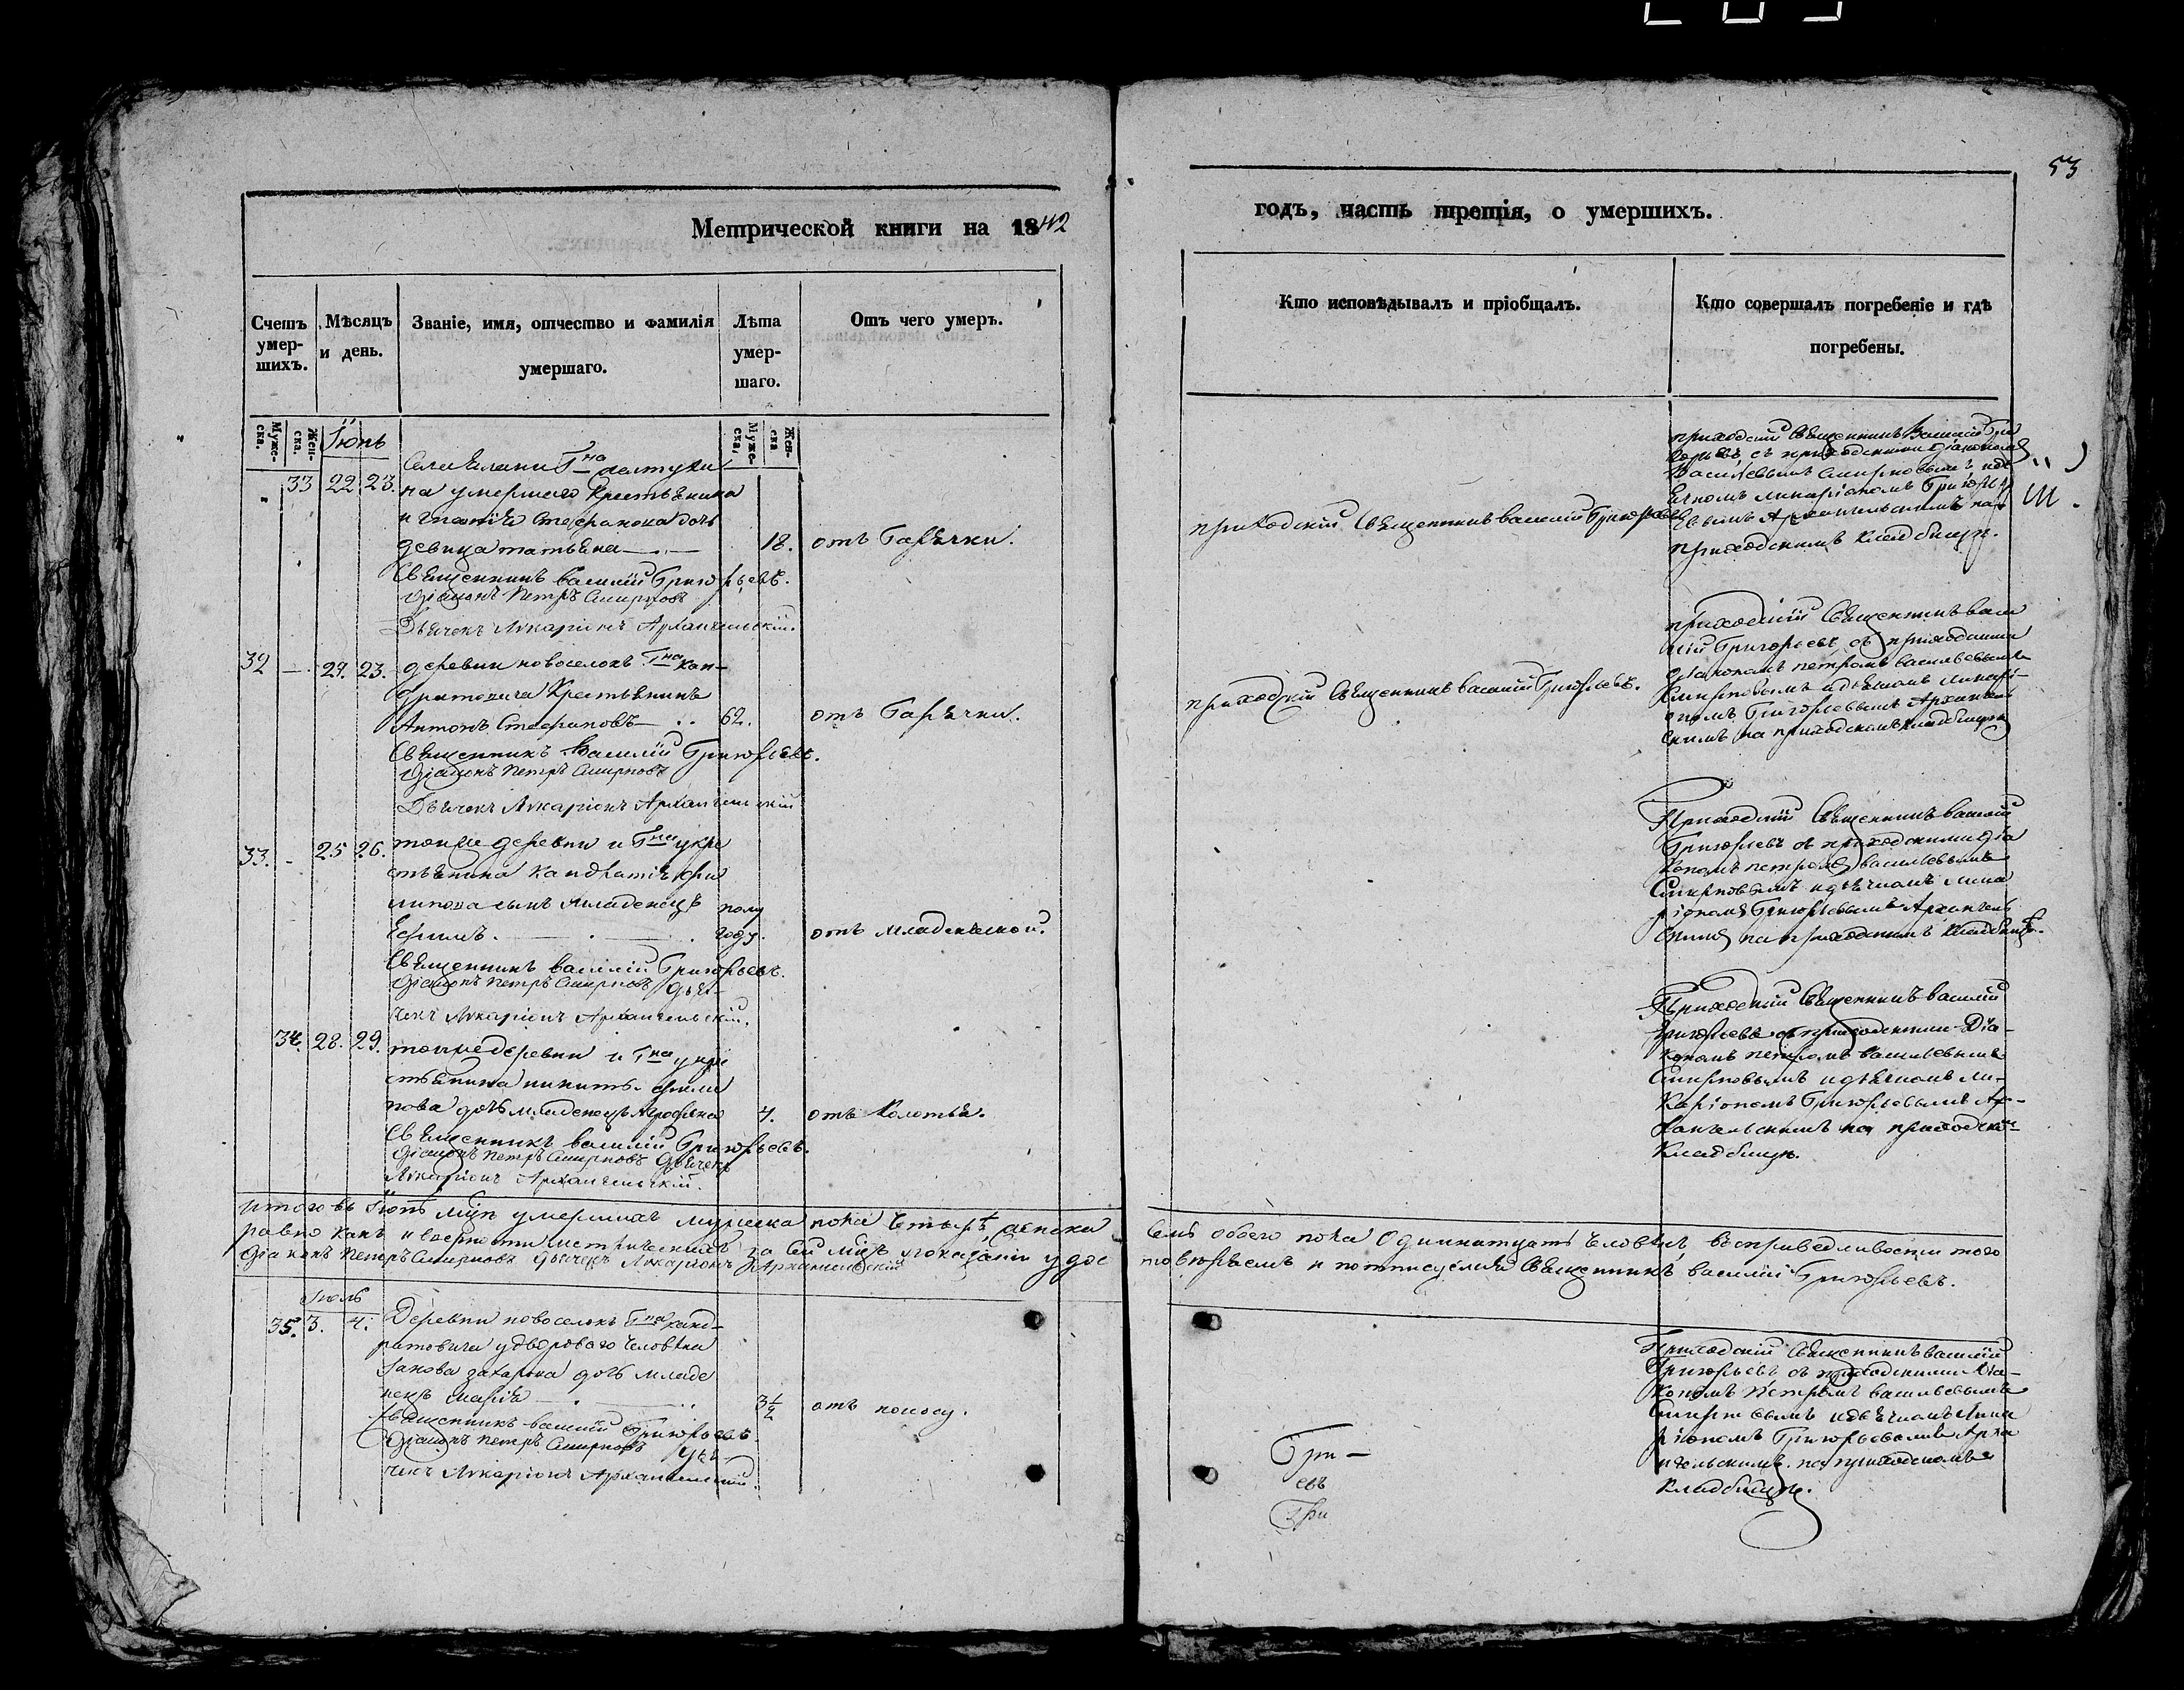 53
Метрической книги на 1842
годъ, часть третія, о умершихъ.
Счетъ умер-шихъ.
Мѣсяцъ и день.
Званіе, имя, отчество и фамилія умершаго.
Лѣта умер-шаго.
Отъ чего умеръ.
Кто исповѣдывалъ и пріобщалъ.
Кто совершалъ погребеніе и гдѣ погребены.
Муже-ска.
Жен-ска.
Муже-ска.
Жен-ска
Іюнь
33 22 23.
на умершего крестьянина
Стефанова дочь
девица татьяна
18.
отъ Гарячки.
Священникъ василій Григорьевъ.
Діаконъ Петръ Смирновъ
Дьячекъ Макаріонъ Архангельскій.
приходскій Священникъ василій Григорьевъ
приходскій Священникъ Василій Гри
горьевъ съ приходскими діакономъ
Васильевымъ Смирновымъ
Архангельскимъ на
приходскимъ кладбищѣ.
32 — 23.
деревни новоселокъ Г-на кан-
дратовича Крестьянинъ
Антонъ Стефановъ
62.
отъ Гарячки.
Священникъ Василій Григорьевъ.
Діаконъ Петръ Смирновъ
Дьячекъ Макаріонъ Архангельскій
приходскій Священникъ василій Григорьевъ.
приходскій Священникъ васи
лій Григорьевъ съ приходскими
діакономъ петромъ васильевымъ
Смирновымъ идьячкомъ макарі-
ономъ Григорьевымъ Архангель
скимъ на приходскомъ кладбищѣ
33. - 25 26.
тойже деревни и Г-на укре
стьянина кандратія фи
липова сынъ младенецъ
Ефимъ.
полу
году.
отъ младенческой.
Священникъ василій Григорьевъ.
Діаконъ Петръ Смирновъ Дьяч-
чекъ Макаріонъ Архангельскій.
Приходскій Священникъ василій
Григорьевъ съ приходскими діа
кономъ петромъ васильевымъ
Смирновымъ идьячкомъ мака
ріономъ Григорьевымъ Архангель
скимъ на приходскимъ кладбищѣ.
34. 28. 29.
тойже деревни и Г-на укре
стьянина никиты фили
пова дочь младенецъ
4.
отъ Колотья.
Священникъ василій Григорьевъ.
Діаконъ Петръ Смирновъ Дьячекъ
Макаріонъ Архангельскій.
Приходскій Священникъ василій
Григорьевъ съ приходскими Діа-
кономъ петромъ васильевымъ
Смирновымъ идьячкомъ ма-
каріономъ Григорьевымъ Ар-
хангельскимъ на приходском
Кладбищѣ.
итого въ Іюнѣ м-цѣ умершихъ мужска пола четыре, женска
Семь обоего пола Одиннатцать человѣкъ, въ справедливости того
равно какъ и верности метрическихъ за сей м-цъ показаній удос
товѣряемъ и подписуемся Священникъ василій Григорьевъ.
Діаконъ Петръ Смирновъ Дьячекъ Макаріонъ Архангельскій
Іюль
35. 3. 4.
Деревни новоселокъ Г-на канд-
ратовича удворового человѣка
Іакова захарова дочь младе
нецъ марія
3½
отъ поносу.
Священникъ василій Григорьевъ.
Діаконъ Петръ Смирновъ Дья-
чекъ Макаріонъ Архангельскій.
Гри —
евъ
Гри
Приходскій Священникъ василій
Григорьевъ съ приходскими Діа-
кономъ Петромъ васильевымъ
Смирновымъ идьячкомъ Мака
ріономъ Григорьевымъ Арха
нгельскимъ на приходскомъ
Кладбищѣ.